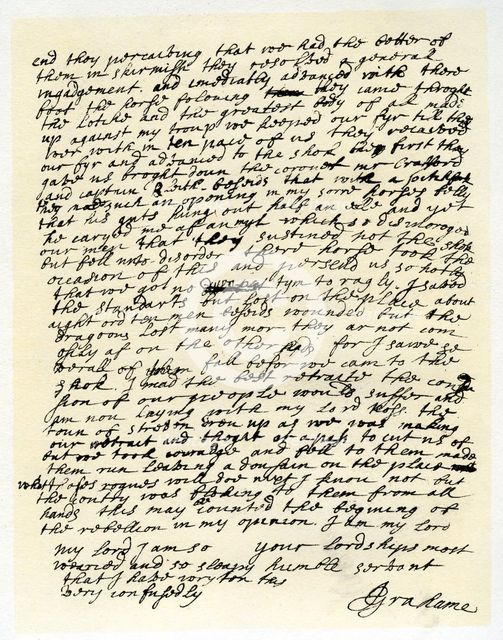 end they percaiving that we had the better of
them in skirmish they resolved a generall
ingadgement and imediatly advanced with there
foot the horse folouing they came throght
the lotche and the greatest body of all made
up against my troup we keeped our fyr till they
wer with in ten pace of us they recaived
our fyr and advanced to the shok the first they
gave us broght doun the coronet mr Crafford
and captain Bleith besids that with a pitchfork
they mad such an opening in my sorre horses belly
that his guts hung out half an elle and yet
he caryed me af an myl which so discoroged
our men that they sustined not the shok
but fell into disorder there horse took the
occasion of this and persend us so hotly
that we got no tym to ragly I saved
the standarts but lost on the place about
aight ord ten men besids wounded but the
dragoons lost many mor they ar not com
esily af on the other side for I sawe se
verall of them fall befor we cam to the
shok I mad the best retraite the con
sion of our pieople would suffer and
am nou laying with my Lord Ross the
toun of streven dreu up as we was making
our retrait and thoght of a pass to cut us of
but we took couradge and fell to them made
them run leaving a dousain on the place
what thoses rogues will doe next I know not but
the contry was floking to them from all
hands this may be counted the begining of
the rebellion in my opinion I am my lord
my lord I am so your lordships most
wearied and so sleapy humble servant
that I have wryton this
very confusedly
J Grahame